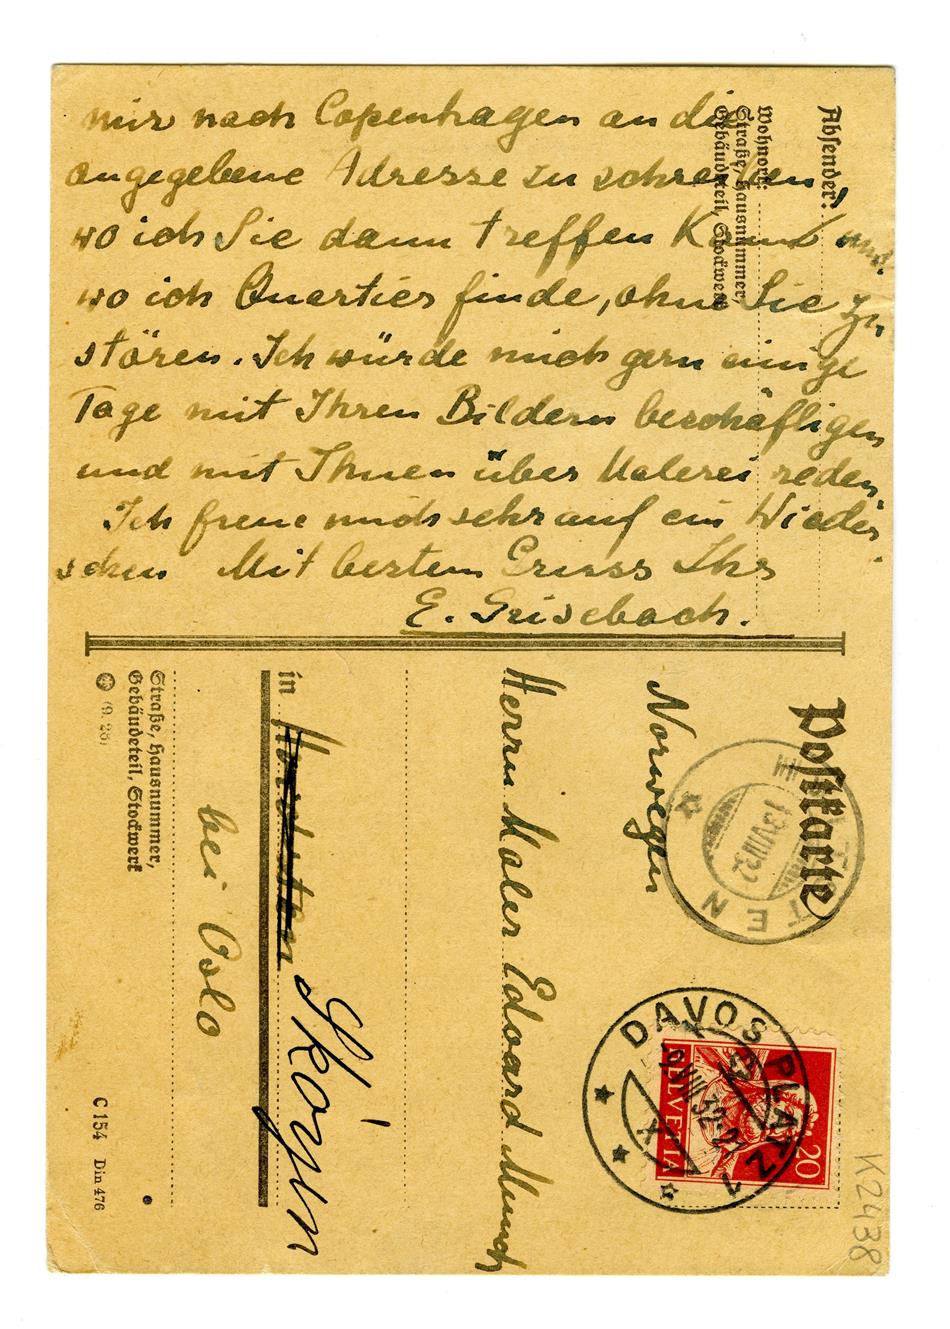 mir nach Copenhagen an die
angegebene Adresse zu schreiben
wo ich Sie dann treffen kann und
wo ich Quartier finde, ohne Sie zu
stören. Ich würde mich gern einige
Tage mit Ihren Bildern beschäftigen
und mit Ihnen über Malerei reden.
Ich freue mich sehr auf ein Wieder
sehen Mit bestem Gruss Ihr
E. Grisebach.
Absender:
Wohnort:
Straße, Hausnummer,
Gebäudeteil, Stockwerk
Postkarte
TTEN
13 VIII 32
DAVOS PLATZ 1
-9.VIII.32-21
X
20
HELVETIA
K2438
Norwegen
Herrn Maler Edvard Munch
in
Sköyen
bei Oslo
Straße, Hausnummer,
Gebäudeteil, Stockwerk
(9. 28)
C 154 Din 476